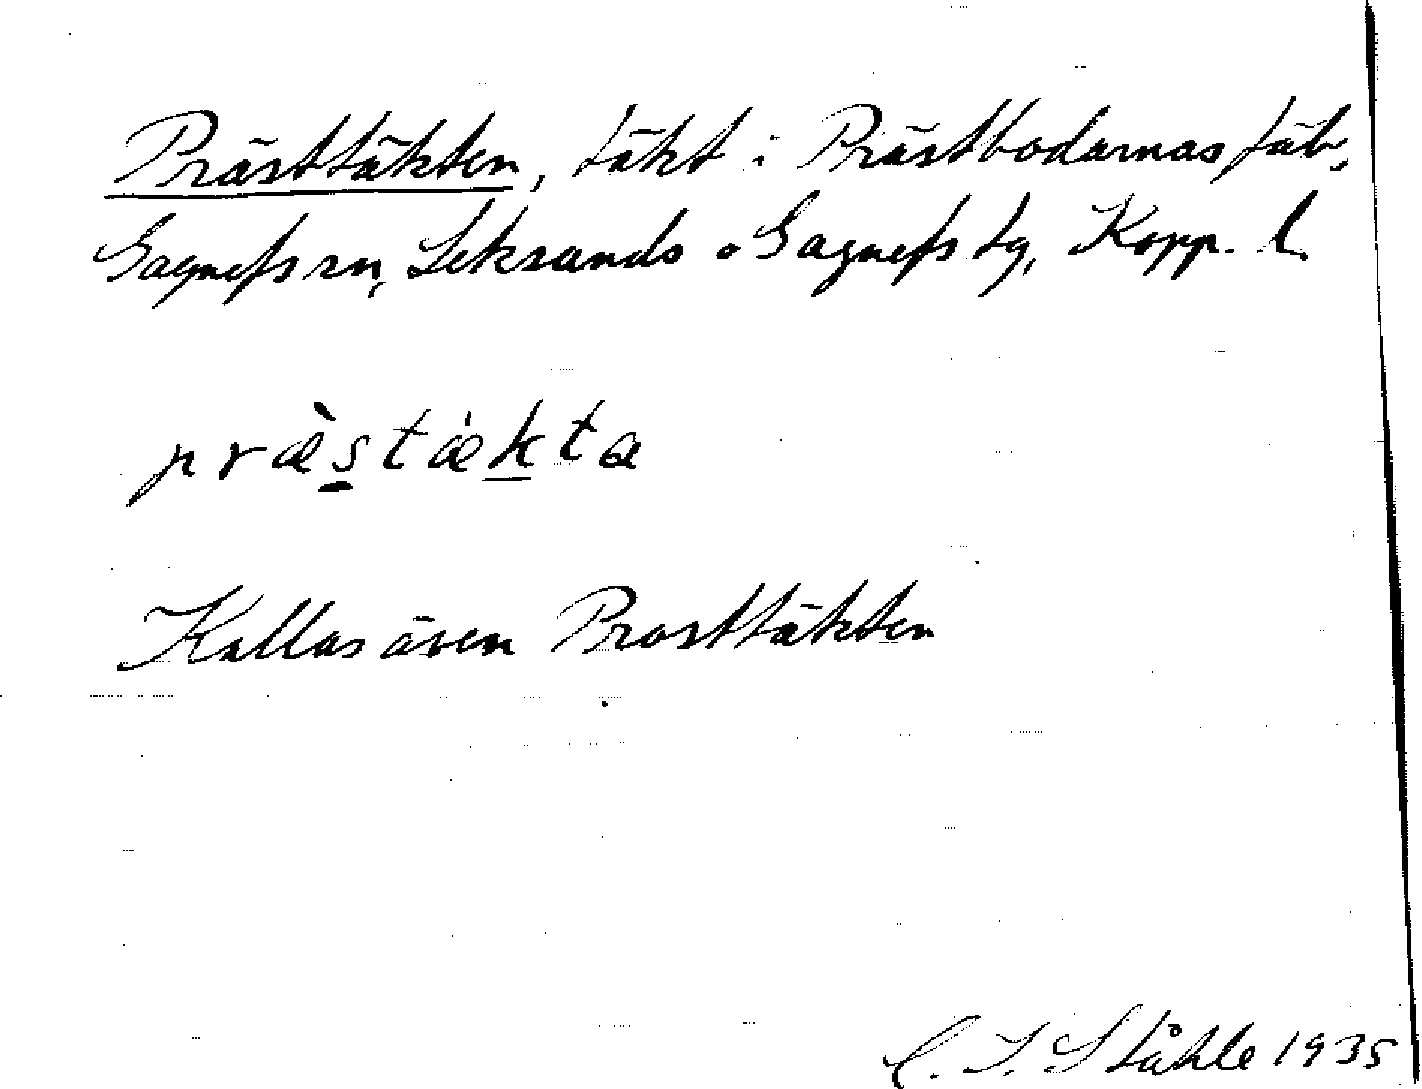 Prästtäkten, täkt i Prästbodarnas fäb.,
Gagnefs sn, Leksands o Gagnefs tg, Kopp. l.
præ̀s̲tæ̍k̲ta
Kallas även Prosttäkten
C. I. Ståhle 1935